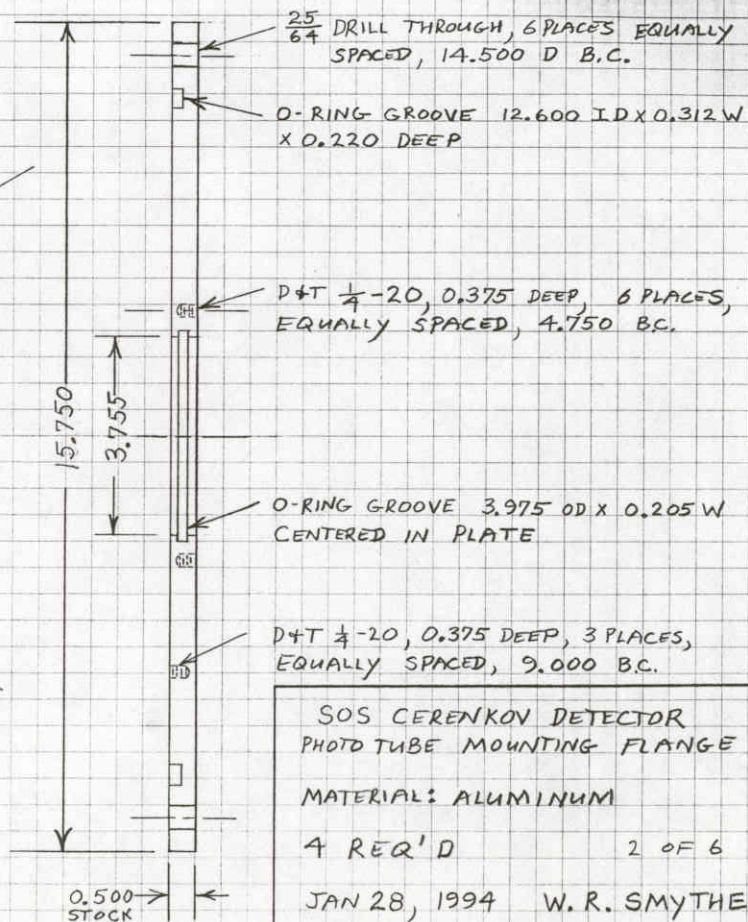 25/64 DRILL THROUGH, 6 PLACES EQUALLY
SPACED, 14.500 D B.C.
O-RING GROOVE 12.600 ID X 0.312 W
X 0.220 DEEP
D+T 1/4-20, 0.375 DEEP, 6 PLACES,
EQUALLY SPACED, 4.750 B.C.
15.750
3.755
O-RING GROOVE 3.975 OD X 0.205 W
CENTERED IN PLATE
D+T 1/4-20, 0.375 DEEP, 3 PLACES,
EQUALLY SPACED, 9.000 B.C.
SOS CERENKOV DETECTOR
PHOTO TUBE MOUNTING FLANGE
MATERIAL: ALUMINUM
4 REQ'D 2 OF 6
JAN 28, 1994 W. R. SMYTHE
0.500
STOCK